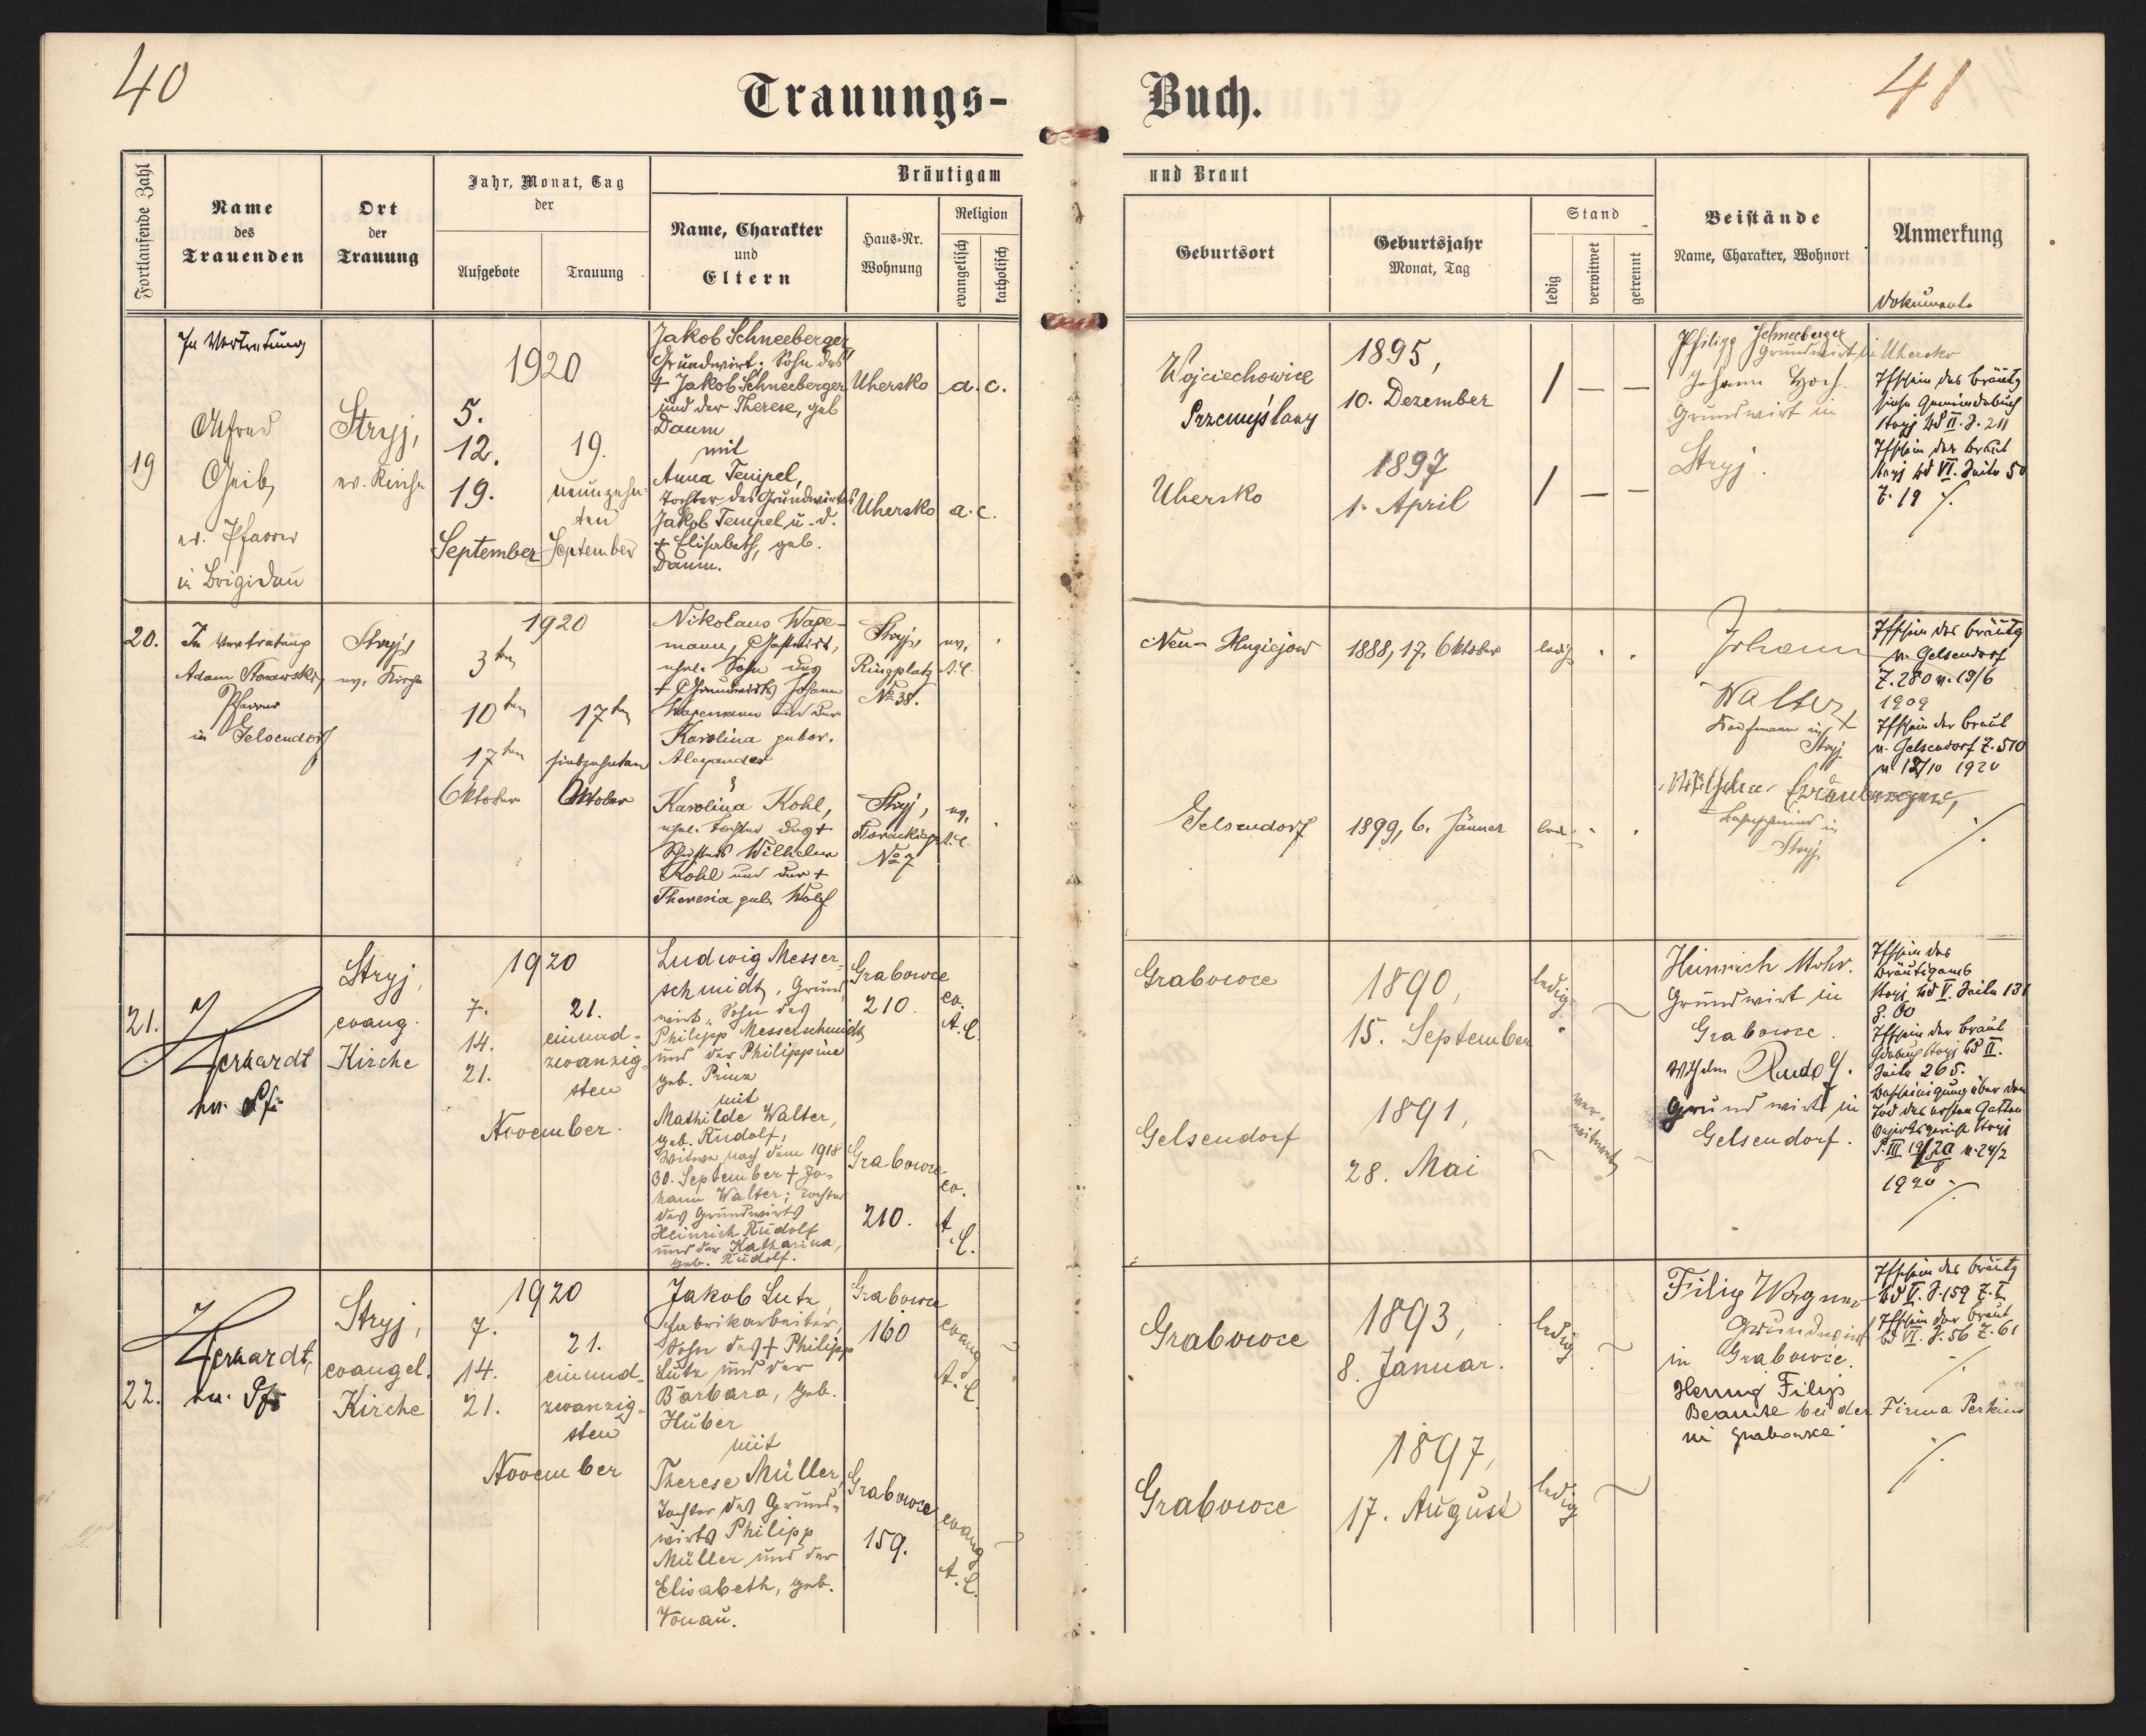 40
Trauungs-
Buch.
41
Fortlaufende Zahl
Name
des
Trauenden
Ort
der
Trauung
Jahr, Monat, Tag
der
Aufgebote
Trauung
Bräutigam
Name, Charakter
und
Eltern
Haus-Nr.
Wohnung
Religion
evangelisch
katholisch
und Braut
Geburtsort
Geburtsjahr
Monat, Tag
Stand
ledig
verwitwet
getrennt
Beistände
Name, Charakter, Wohnort
Anmerkung
Dokumente
19
In Vertretung
Alfred
Geib,
ev. Pfarrer
in Brigidau
Stryj,
ev. Kirche
1920
5.
12.
19.
September
19.
neunzehn-
ten
September
Jakob Schneeberger
Grundwirt, Sohn des
+ Jakob Schneeberger
und der Therese, geb
Daum
mit
Anna Tempel,
Tochter des Grundwirtes
Jakob Tempel u. d.
+ Elisabeth, geb.
Daum.
Uhersko
a. c.
Uhersko
a. c.
Wojciechowice
Przemyślany
1895,
10. Dezember
/ — —
Uhersko
1897
1. April
/ — —
Philipp Schneeberger
Grundwirt in Uhersko
Johann Hoch.
Grundwirt in
Stryj.
Tfschein des Bräutg
siehe Gemeindebuch
Stryj Bd II. S. 211
Tfschein der Braut
Stryj Bd VI. Seite 50
Z. 19 ∕.
20.
In Vertretung
Adam Stonawski,
Pfarrer
in Gelsendorf
Stryj,
ev. Kirche
1920
3ten
10ten
17ten
Oktober
17ten
siebzehnten
Oktober
Nikolaus Wape-
mann, Gastwirt,
ehel. Sohn des
+ Grundwirts Johann
Wapemann und der
Karolina gebor.
Alexander
Karolina Kohl,
ehel. Tochter des +
Wilhelm
Kohl und der +
Theresia geb. Wolf
Stryj,
Ringplatz
No 38.
ev.
A. C.
Stryj,
No 7
ev.
A. C.
Neu-
1888, 17. Oktober
ledig
Gelsendorf
1899, 6. Jänner
led.
Johann
Walter,
Kaufmann in
Stryj
in
Stryj
Tfschein des Bräutg
v. Gelsendorf
Z. 280 v. 19/6
1909
Tfschein der Braut
v. Gelsendorf Z. 510
v. 12/10 1920
∕.
21.
Stryj,
evang.
Kirche
1920
7.
14.
21.
21.
einund-
zwanzig-
sten
November.
Ludwig Messer-
schmidt, Grund-
wirt, Sohn des
Philipp Messerschmidt
und der Philippine
geb. Prinz
mit
Mathilde Walter,
geb. Rudolf,
Witwe nach dem 1918
30. September + Jo-
hann Walter; Tochter
des Grundwirts
Heinrich Rudolf
und der Katharina,
geb. Rudolf.
Grabowce
210.
ev.
A. C.
Grabowce
210.
ev.
A. C.
Grabowce
1890,
15. September
ledig
Gelsendorf
1891,
28. Mai
ver-
witwet
Heinrich Mohr.
Grundwirt in
Grabowce.
Wilhelm Rudolf.
Grundwirt in
Gelsendorf.
Tfschein des
Bräutigams
Stryj Bd V. Seite 131
Z. 60
Tfschein der Braut
Stryj Bd II.
Seite 265.
Bescheinigung über den
Tod des ersten Gatten
Bezirksgericht Stryj
1920 ∕.
22.
Stryj,
evangel.
Kirche
1920
7.
14.
21.
21.
einund-
zwanzig-
sten
November
Jakob Lutz,
Fabrikarbeiter,
Sohn des + Philipp
Lutz und der
Barbara, geb.
Huber
mit
Therese Müller,
Tochter des Grund-
wirts Philipp
Müller und der
Elisabeth, geb.
Vonau.
Grabowce
160
evang
A. C.
Grabowce
159.
evang
A. C.
Grabowce
1893,
8. Januar.
ledig
Grabowce
1897,
17. August
ledig
Filip Wagner
Grundwirt
in Grabowce.
Hennig Filip
Beamte bei der Firma Perkins
in Grabowce
Tfschein des Bräutg
Bd V. S. 159 Z. 5
Tfschein der Braut
Bd VI. S. 56 Z. 61
∕.
∕.